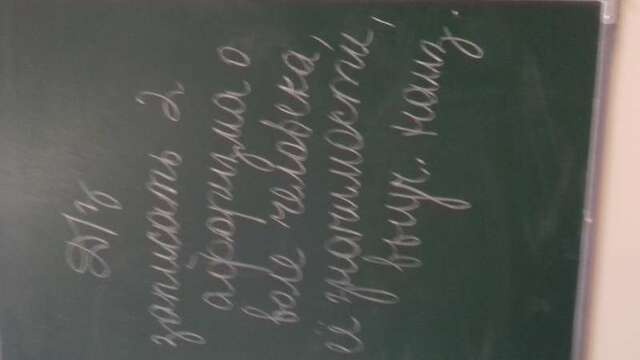 Д/з
записать 2
афоризма о
воле человека,
её значимости,
выуч. наиз.